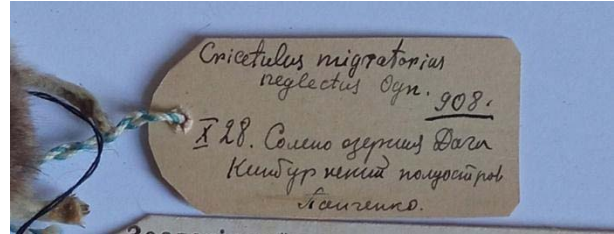 Cricetulus migratorius
neglectus Ogn.
908.
X 28. Солено озерная Дача
Кинбурнский полуостров
Панченко.